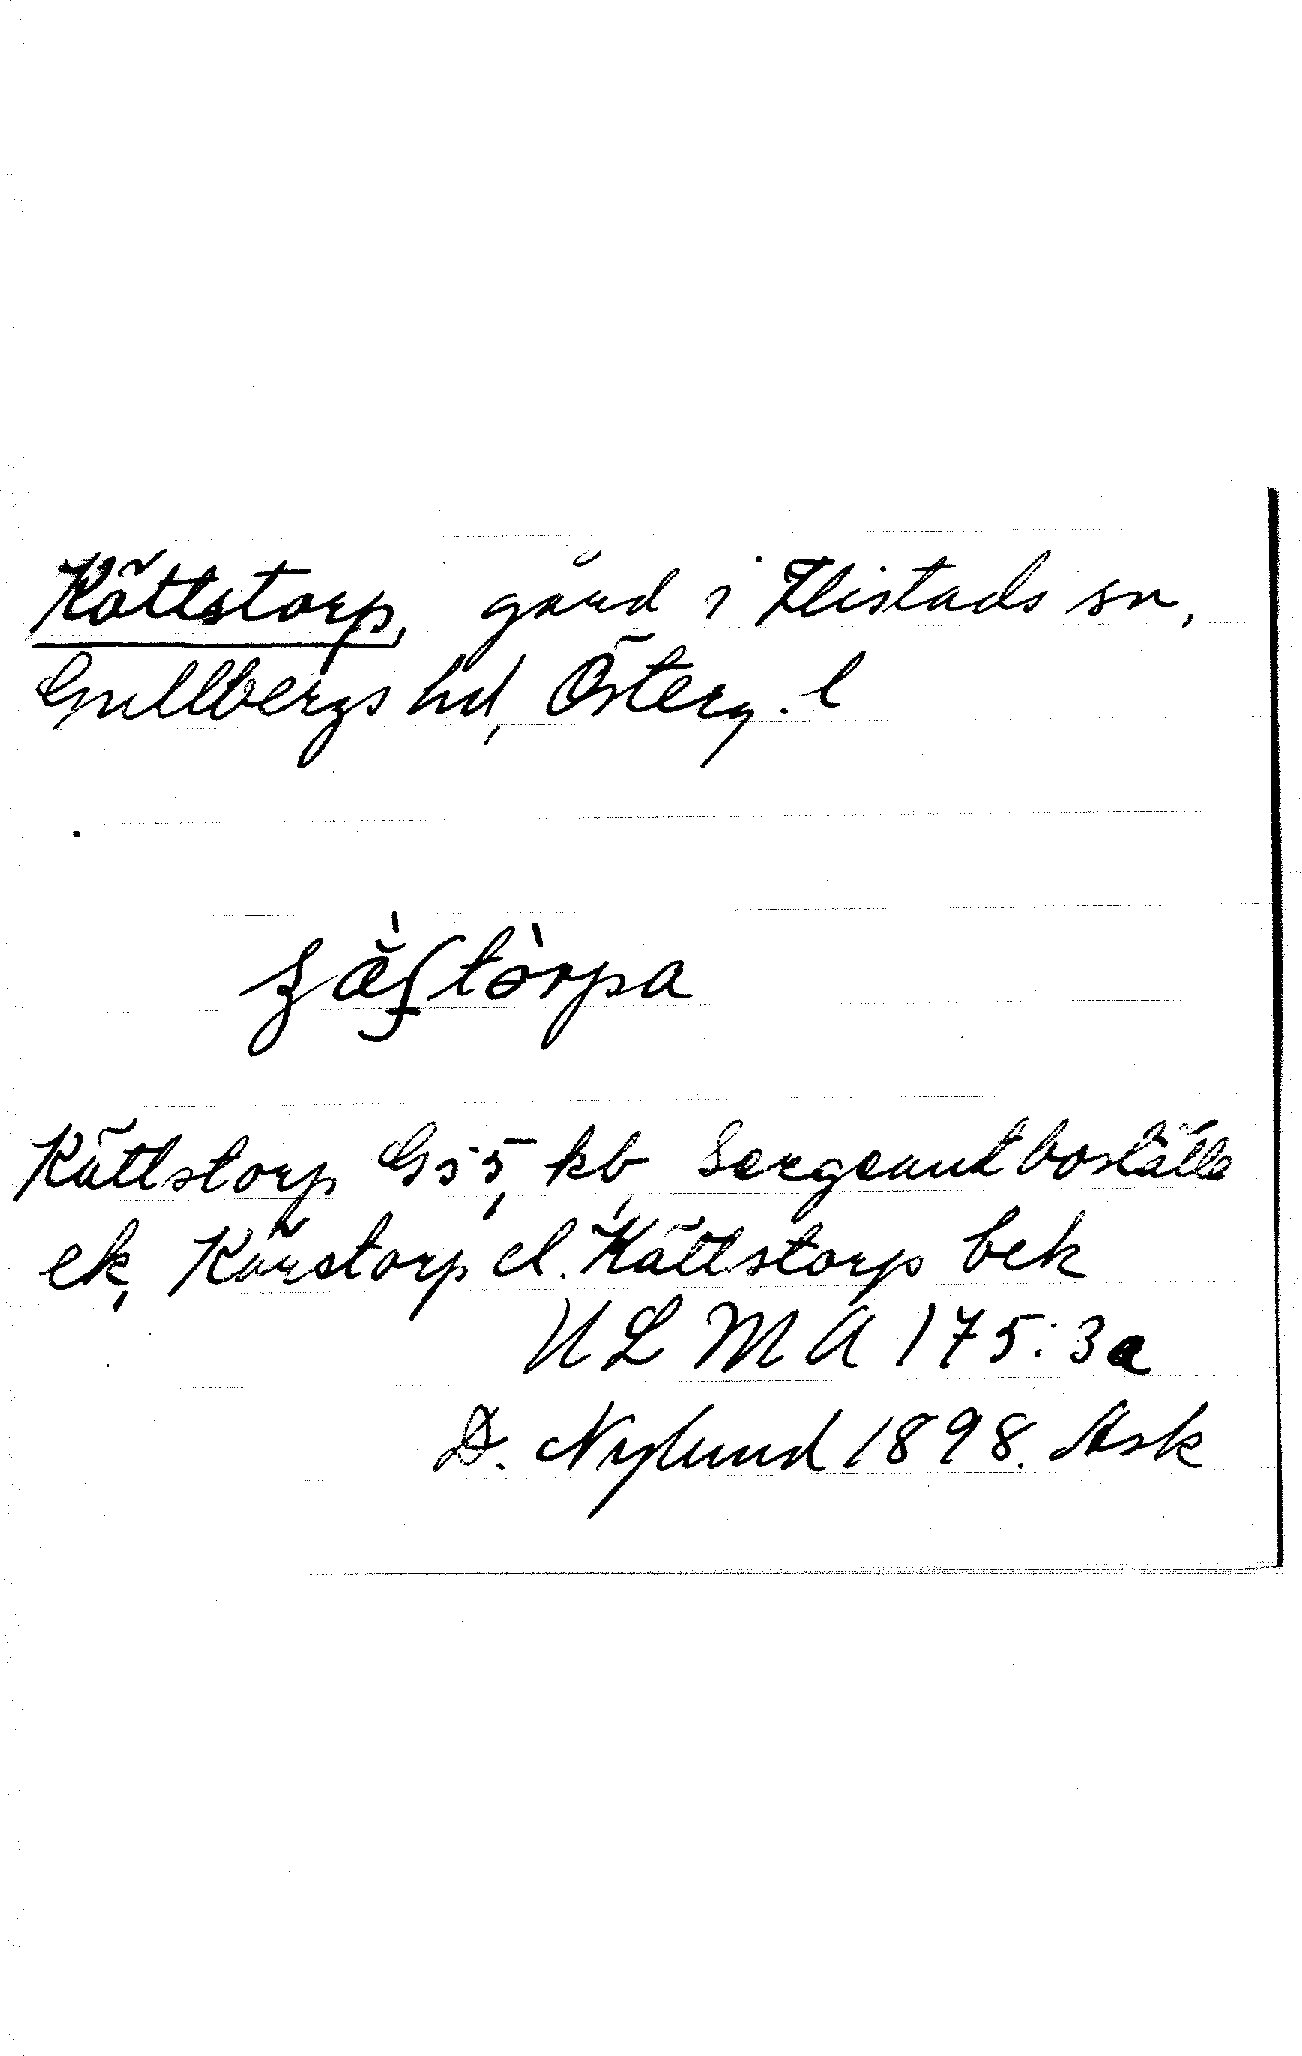 Kättstorp, gård i Flistads sn,
Gullbergs hd, Österg. l
Kättstorp GS5, kb, Sergeantboställe
ek, Kärstorp el. Kättstorp bek
ULMA 175:3a
D. Nylund 1898. Ask